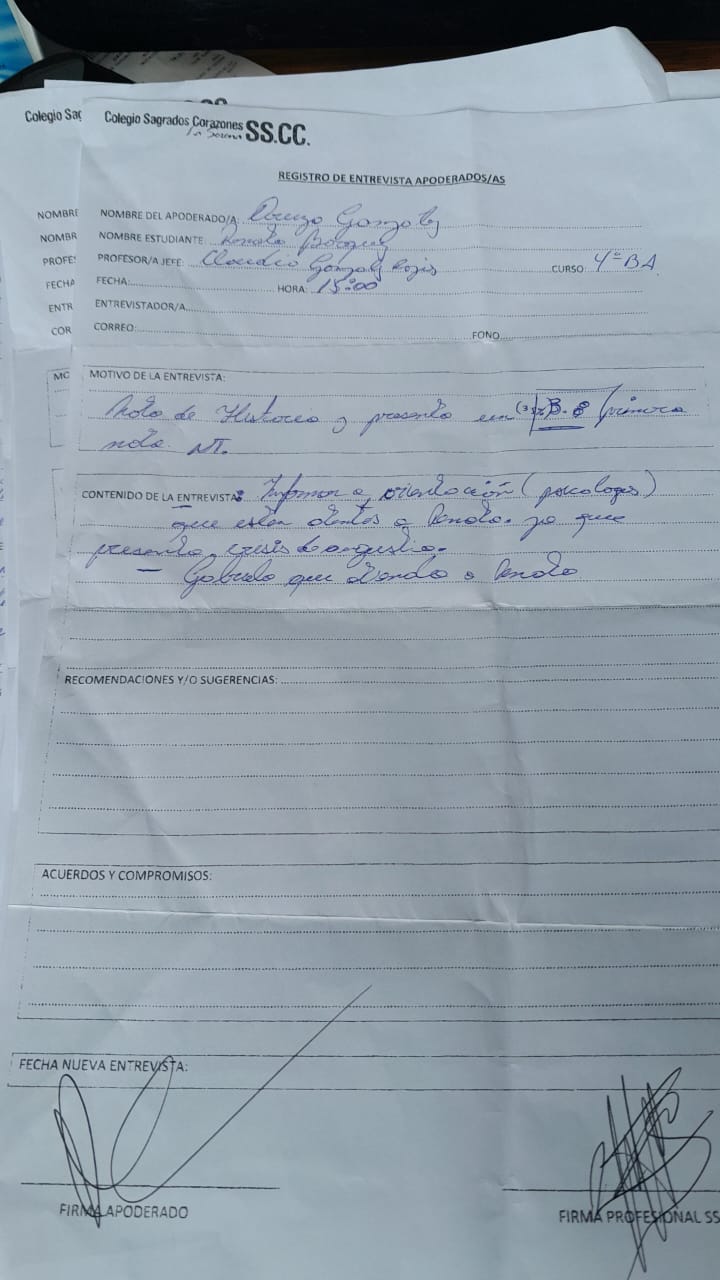 Colegio Sag
Colegio Sagrados Corazones SS.CC.
La Serena
REGISTRO DE ENTREVISTA APODERADOS/AS
NOMBRE
NOMBRE DEL APODERADO/A: Gonzalez
NOMBR
NOMBRE ESTUDIANTE: Renato
PROFES
PROFESOR/A JEFE: Claudio Gonzalez Rojas CURSO: 4º BA
FECHA
FECHA: HORA: 15:00
ENTR
ENTREVISTADOR/A
COR
CORREO: FONO
MO
MOTIVO DE LA ENTREVISTA:
Nota de Historia y presenta en primera
nota
CONTENIDO DE LA ENTREVISTA: Informar a orientación (psicologos)
que esten atentos a Renato. ya que
presenta crisis de angustia.
– que a Renato
RECOMENDACIONES Y/O SUGERENCIAS:
ACUERDOS Y COMPROMISOS:
FECHA NUEVA ENTREVISTA:
FIRMA APODERADO
FIRMA PROFESIONAL SS